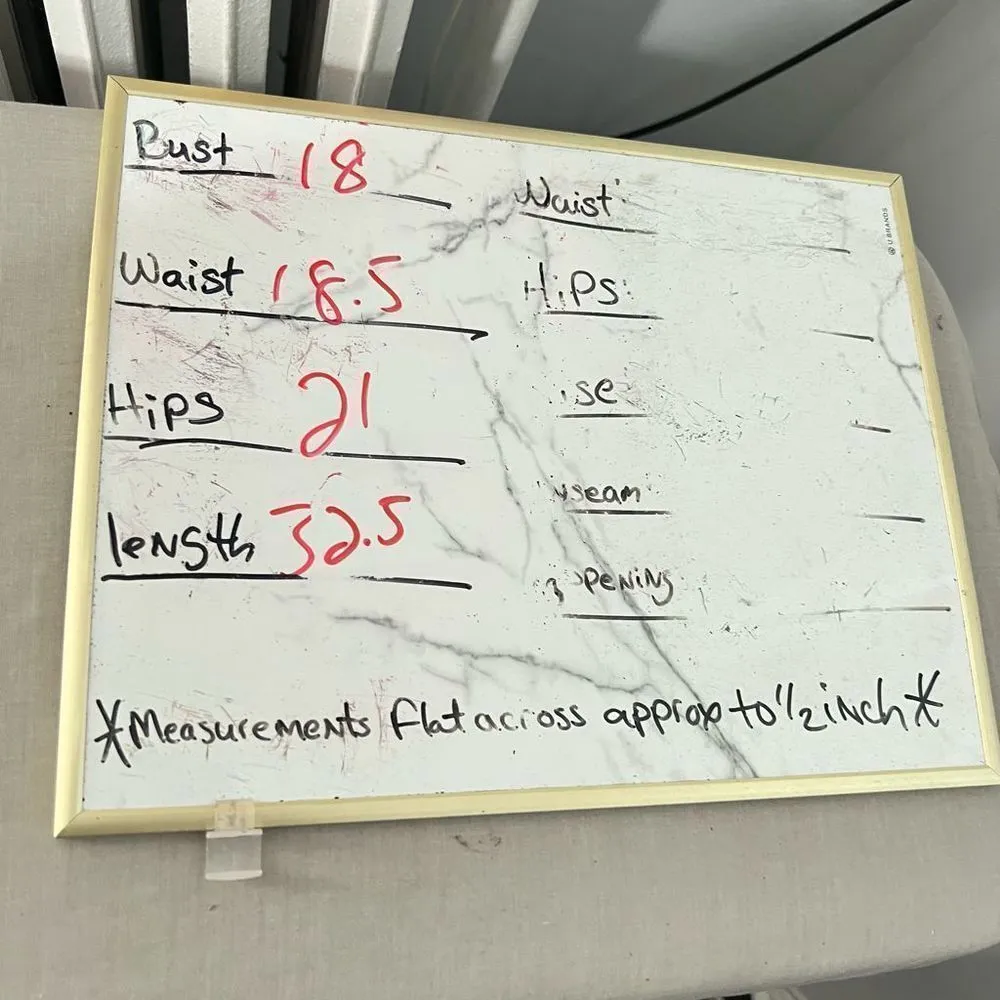 Bust 18
Waist 18.5
Hips 21
length 32.5
Waist:
Hips:
se
seam
pening
*Measurements flat across approx to 1/2 inch*
U BRANDS